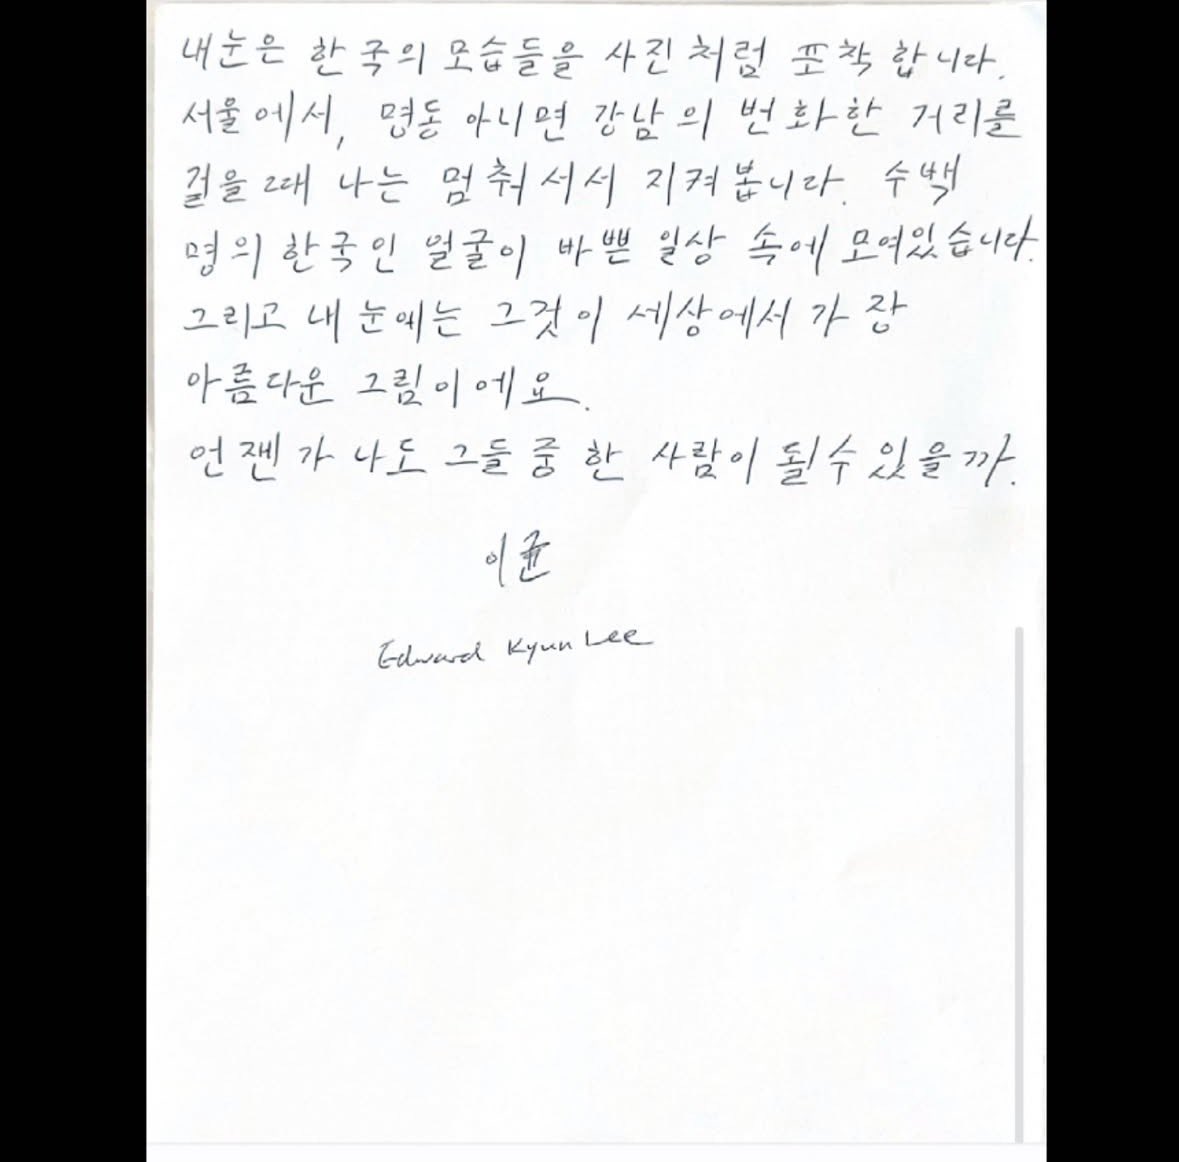 내눈은 한국의 모습들을 사진처럼 포착합니다.
서울에서, 명동 아니면 강남의 번화한 거리를
걸을 때 나는 멈춰서서 지켜봅니다. 수백
명의 한국인 얼굴이 바쁜 일상 속에 모여있습니다.
그리고 내 눈에는 그것이 세상에서 가장
아름다운 그림이에요.
언젠가 나도 그들 중 한 사람이 될수있을까.
이균
Edward Kyun Lee